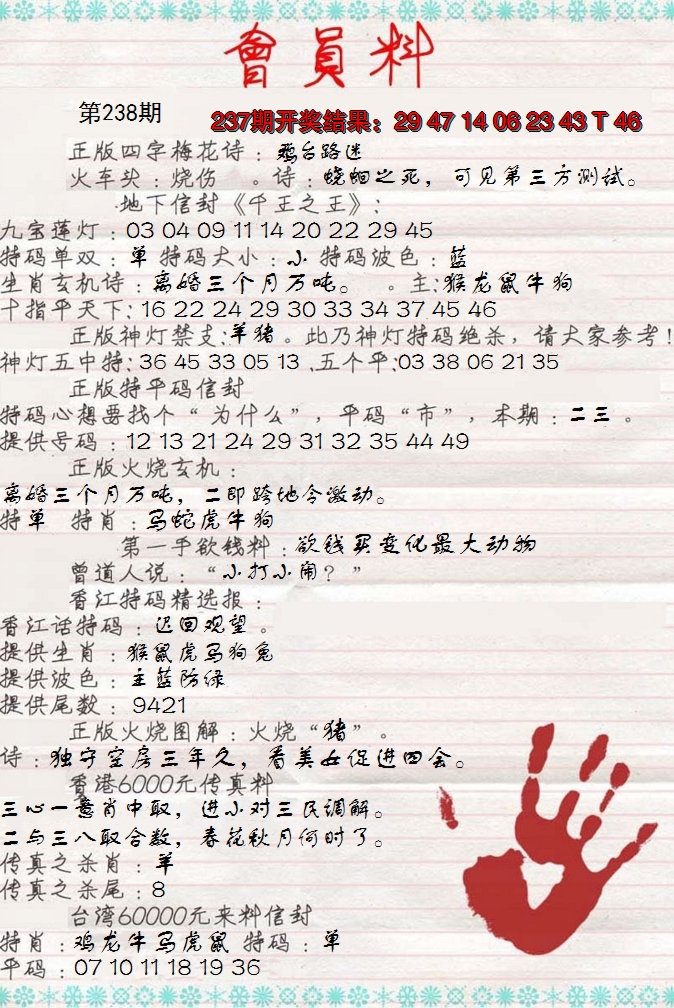 會員料
第238期
237期开奖结果：29 47 14 06 23 43 T 46
正版四字梅花诗：鸡台路迷
火车头：烧伤 。诗：蛲蛔之死，可见第三方测试。
地下信封《千王之王》：
九宝莲灯：03 04 09 11 14 20 22 29 45
特码单双：单 特码大小：小 特码波色：蓝
生肖玄机诗：离婚三个月万吨。 。主:猴龙鼠牛狗
十指平天下: 16 22 24 29 30 33 34 37 45 46
正版神灯禁支:羊猪。此乃神灯特码绝杀，请大家参考!
神灯五中特: 36 45 33 05 13 .五个平:03 38 06 21 35
正版特平码信封
特码心想要找个“为什么”，平码“市”，本期：二三 。
提供号码：12 13 21 24 29 31 32 35 44 49
正版火烧玄机：
离婚三个月万吨，二即跨地令激动。
特单 特肖：马蛇虎牛狗
第一手欲钱料：欲钱买变化最大动物
曾道人说：“小打小闹？”
香江特码精选报：
香江话特码：迟回观望 。
提供生肖：猴鼠虎马狗兔
提供波色：主蓝防绿
提供尾数：9421
正版火烧图解：火烧“猪”。
诗：独守空房三年久，看美女促进四会。
香港6000元传真料
三心一意肖中取，进小对三民调解。
二与三八取合数，春花秋月何时了。
传真之杀肖：羊
传真之杀尾：8
台湾60000元来料信封
特肖：鸡龙牛马虎鼠 特码：单
平码：07 10 11 18 19 36